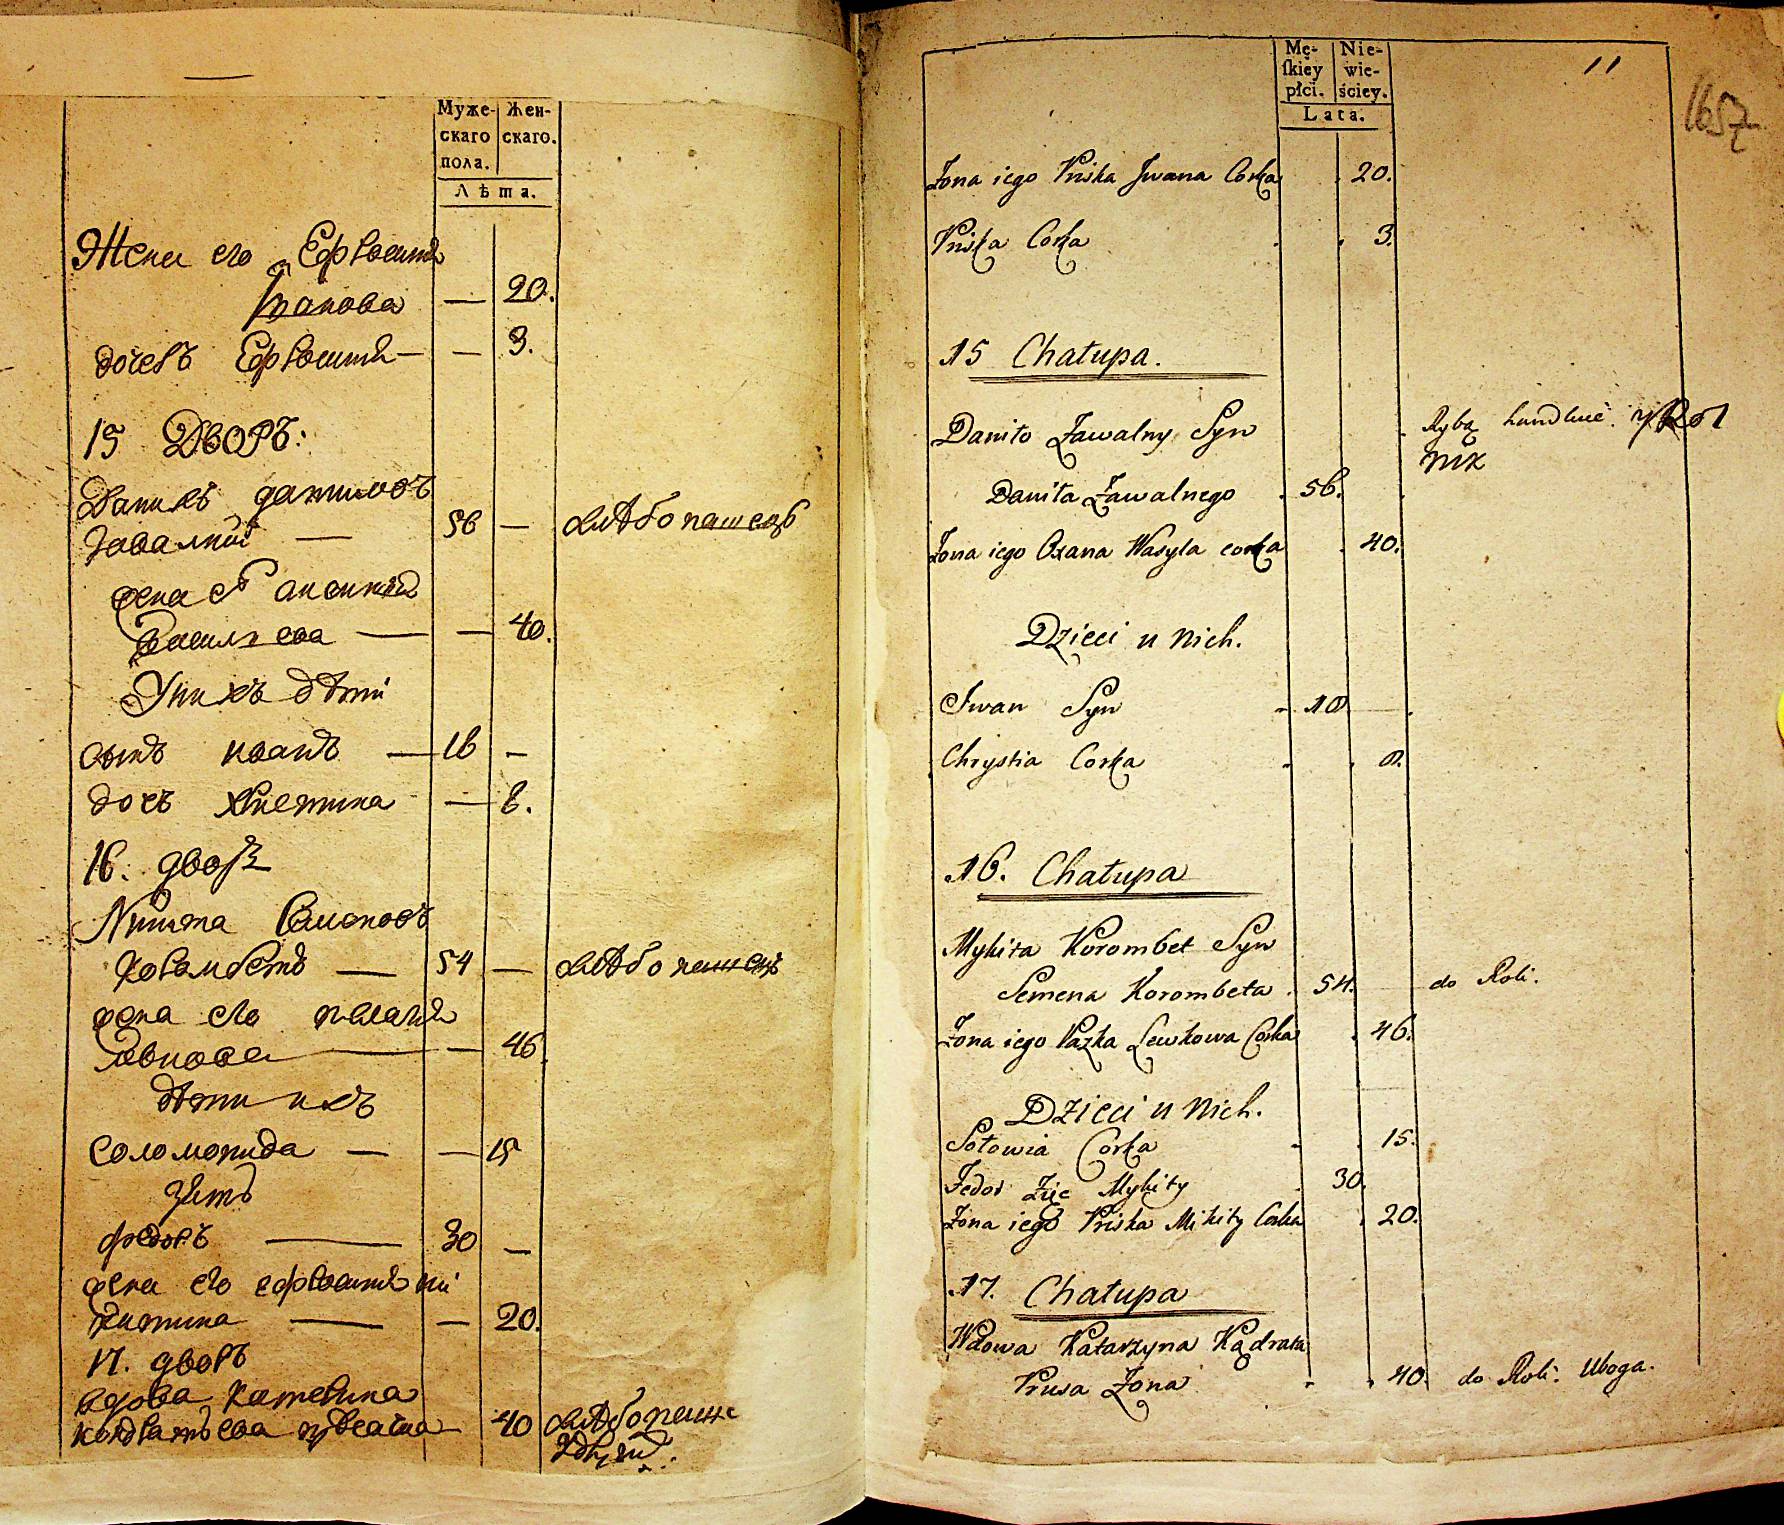 Муже-
скаго
пола.
Жен-
скаго.
Лѣта.
Жена его Ефросинія
Іванова — 20.
дочеръ Ефросинія — — 3.
15 Дворъ:
Данилъ даниловъ
Завалний — 56 — хлѣбопашецъ
жена ег
Васильева — — 40.
У нихъ дѣти
сынъ иванъ — 18 —
дочь христина — 8.
16. дворъ
Никита Семеновъ
Коромбетъ — 54 — хлѣбопашецъ
жена его пелагия
Левкова — — 46
дѣти ихъ
соломонида — — 15
Зять
федоръ — 30 —
жена его ефросиния ни
китина — — 20.
17. дворъ
вдова Катерина
кондратьева 40 хлѣбопаше
Mę-
ſkiey
płci.
Nie-
wie-
ściey.
Lata.
11
1657
Żona iego Priska Jwana Corka 20.
Priska Corka 3.
15 Chałupa.
Daniło Zawalny Syn Rybą handluie. y Rol
nik
Daniła Zawalnego 56.
Żona iego Oxana Wasyla corka 40.
Dzieci u nich.
Iwan Syn 18
Chrystia Corka 8.
16. Chałupa
Mykita Korombet Syn
Semena Korombeta 54. do Roli.
Żona iego Pazka Lewkowa Corka 46.
Dzieci u nich.
Sołowia Corka 15.
Fedor Zięc Mykity 30.
Żona iego Priska Mikity Corka 20.
17. Chałupa
Wdowa Katarzyna Kądrata
Prusa Żona 40. do Roli. Uboga.